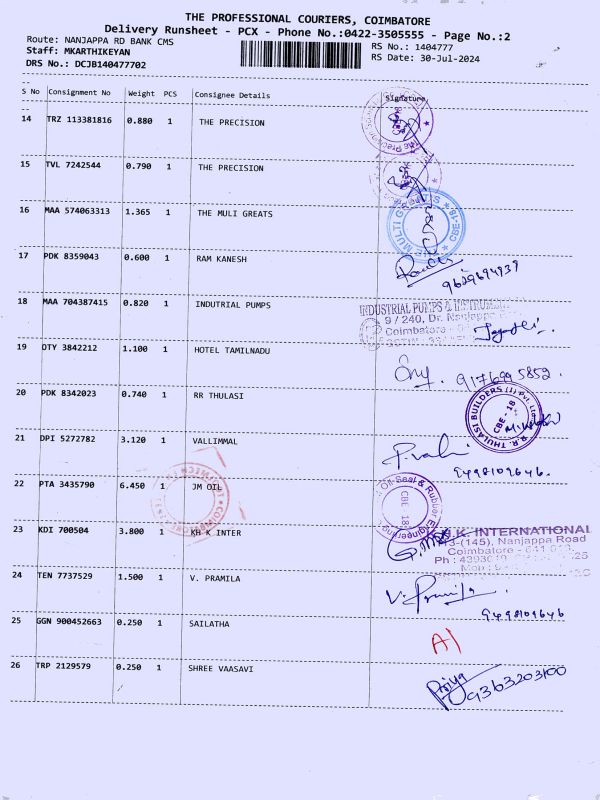 THE PROFESSIONAL COURIERS, COIMBATORE
Delivery Runsheet - PCX - Phone No.:0422-3505555 - Page No.:2
Route: NANJAPPA RD BANK CMS
RS No.: 1404777
Staff: MKARTHIKEYAN
RS Date: 30-Jul-2024
DRS No.: DCJB140477702
S No Consignment No Weight PCS Consignee Details Signature
14 TRZ 113381816 0.880 1 THE PRECISION
15 TVL 7242544 0.790 1 THE PRECISION
16 MAA 574063313 1.365 1 THE MULI GREATS
MULTI CBE-18
17 PDK 8359043 0.600 1 RAM KANESH
9629694939
18 MAA 704387415 0.820 1 INDUTRIAL PUMPS
INDUSTRIAL PUMPS &
9 / 240, Dr. Nanjappa
Coimbatore
19 OTY 3842212 1.100 1 HOTEL TAMILNADU
9176995852.
20 PDK 8342023 0.740 1 RR THULASI
R.R. THULASI BUILDERS (I) Pvt. Ltd.
CBE - 18
21 DPI 5272782 3.120 1 VALLIMMAL
9498109646.
22 PTA 3435790 6.450 1 JM OIL
Oil Seal & Rubber Engineering
CBE 18
23 KDI 700504 3.800 1 KH K INTER
K. INTERNATIONAL
3-(145), Nanjappa Road
Coimbatore - 641 018.
24 TEN 7737529 1.500 1 V. PRAMILA
V. Pramila
9498109646
25 GGN 900452663 0.250 1 SAILATHA
A/
26 TRP 2129579 0.250 1 SHREE VAASAVI
Priya
9363203100